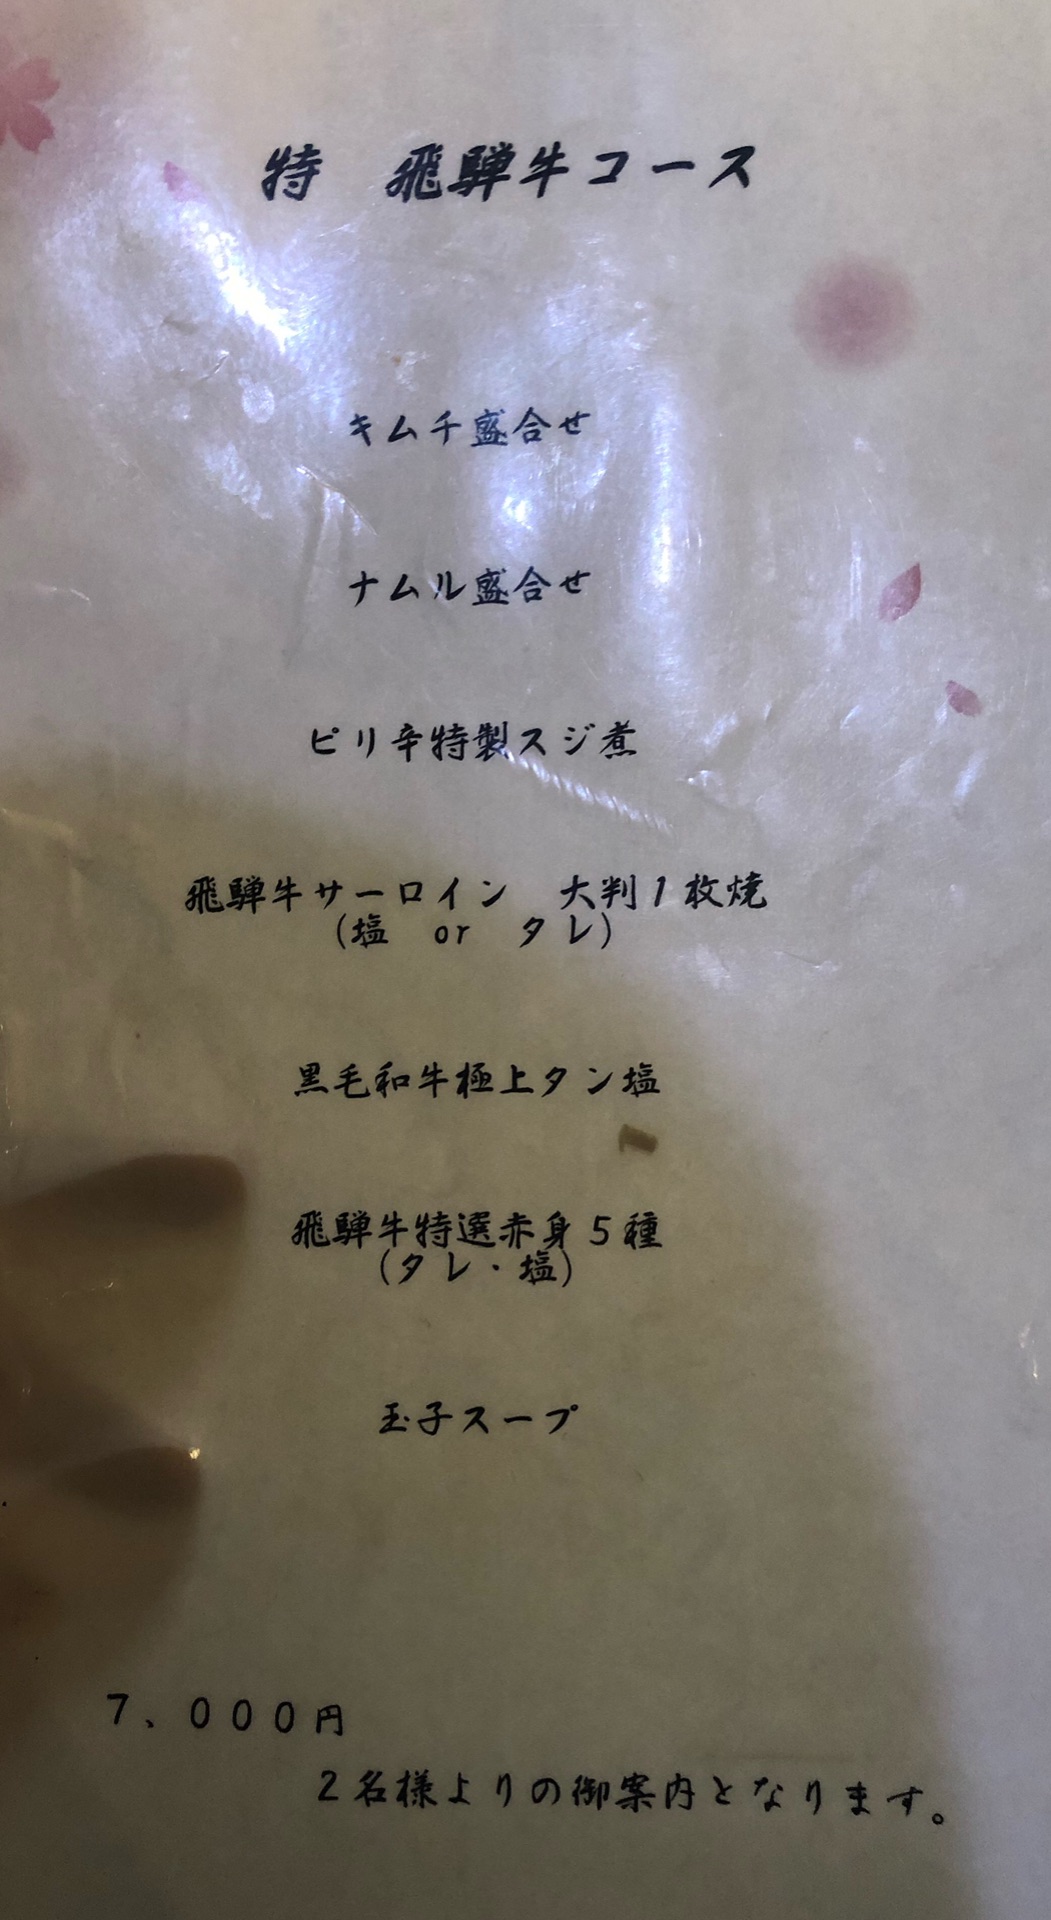 特　飛騨牛コース
キムチ盛合せ
ナムル盛合せ
ピリ辛特製スジ煮
飛騨牛サーロイン　大判１枚焼
（塩　or　タレ）
黒毛和牛極上タン塩
飛騨牛特選赤身５種
（タレ・塩）
玉子スープ
７、０００円
２名様よりの御案内となります。